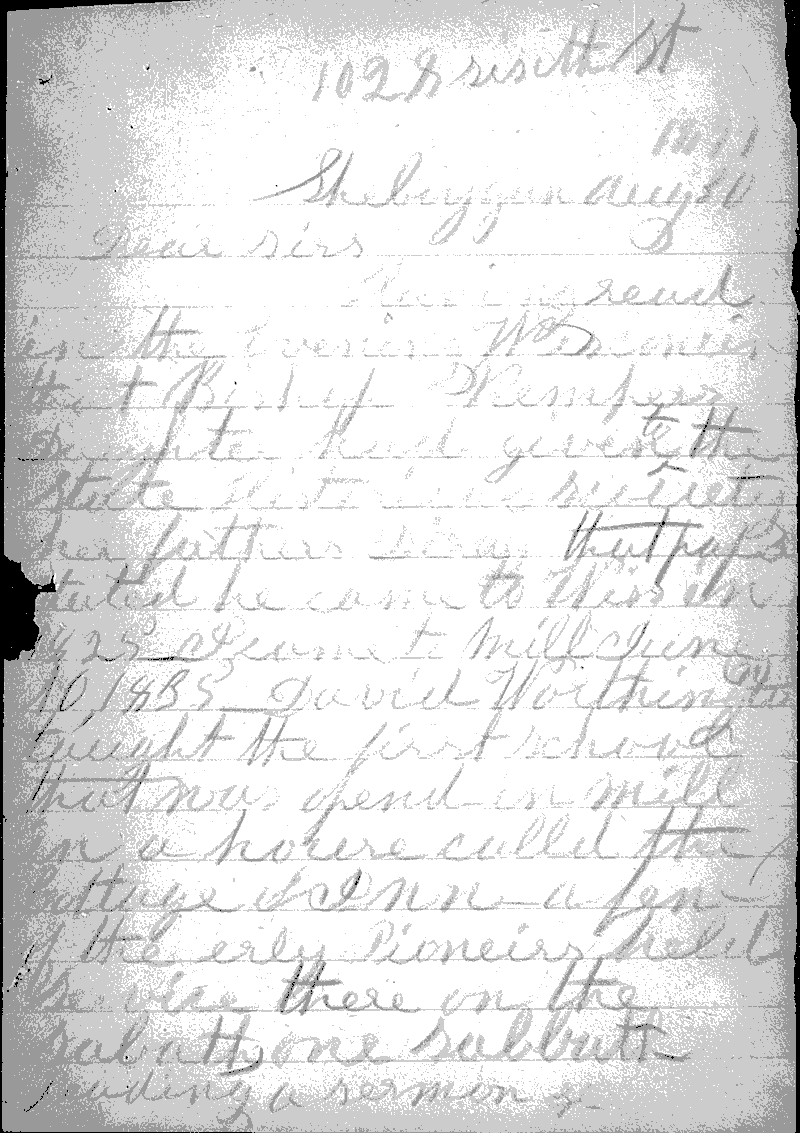 1028 sixth St
Shebiyggan Aug 30
Dear sirs
Having read
in the Evening Wisconsin
that Bishop Kempers
Daughter had given to the
State Historical society
her fathers that paper
stated he come to Wis in
1825 I came to Mill June
10, 1835 David Worthington
taught the first school
that was opend in Mill
in a house calld the
Cottage Inn a few
of the erly Pioneirs held
Service there on the
sabath one sabbath
reading a sermon &